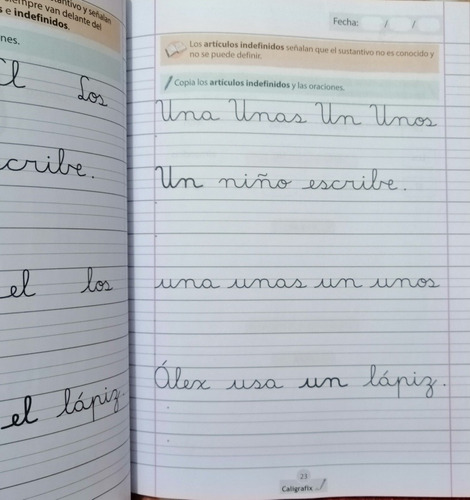 siempre van delante del
e indefinidos.
nes.
El Los
escribe.
el los
el lápiz.
Fecha: / /
Los artículos indefinidos señalan que el sustantivo no es conocido y
no se puede definir.
Copia los artículos indefinidos y las oraciones.
Una Unas Un Unos
Un niño escribe.
una unas un unos
Álex usa un lápiz.
23
Caligrafix